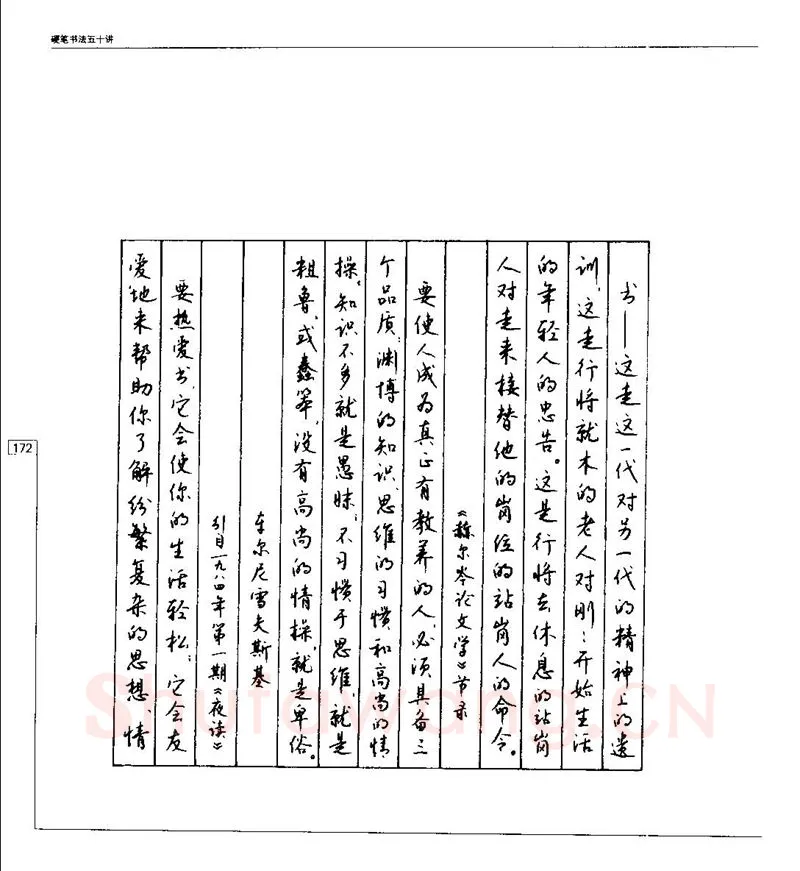 硬笔书法五十讲
书——这是这一代对另一代的精神上的遗
训，这是行将就木的老人对刚：开始生活
的年轻人的忠告。这是行将去休息的站岗
人对走来接替他的岗位的站岗人的命令。
《赫尔岑论文学》节录
要使人成为真正有教养的人，必须具备三
个品质：渊博的知识、思维的习惯和高尚的情
操。知识不多就是愚昧；不习惯于思维，就是
粗鲁或蠢笨，没有高尚的情操，就是卑俗。
车尔尼雪夫斯基
引自一九八四年第一期《夜读》
要热爱书，它会使你的生活轻松；它会友
爱地来帮助你了解纷繁复杂的思想、情
172
Shufawang.CN